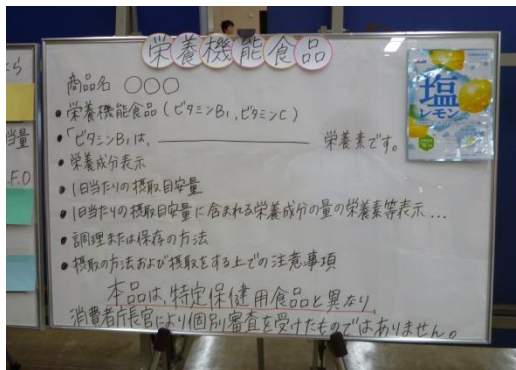 栄養機能食品
商品名 〇〇〇
• 栄養機能食品(ビタミンB₁,ビタミンC)
• 「ビタミンB₁は、＿＿＿＿＿＿＿＿ 栄養素です。
• 栄養成分表示
• 1日当たりの摂取目安量
• 1日当たりの摂取目安量に含まれる栄養成分の量の栄養素等表示…
• 調理または保存の方法
• 摂取の方法および摂取をする上での注意事項
本品は、特定保健用食品と異なり、
消費者庁長官により個別審査を受けたものではありません。
塩
レモン
ら
当量
F.O